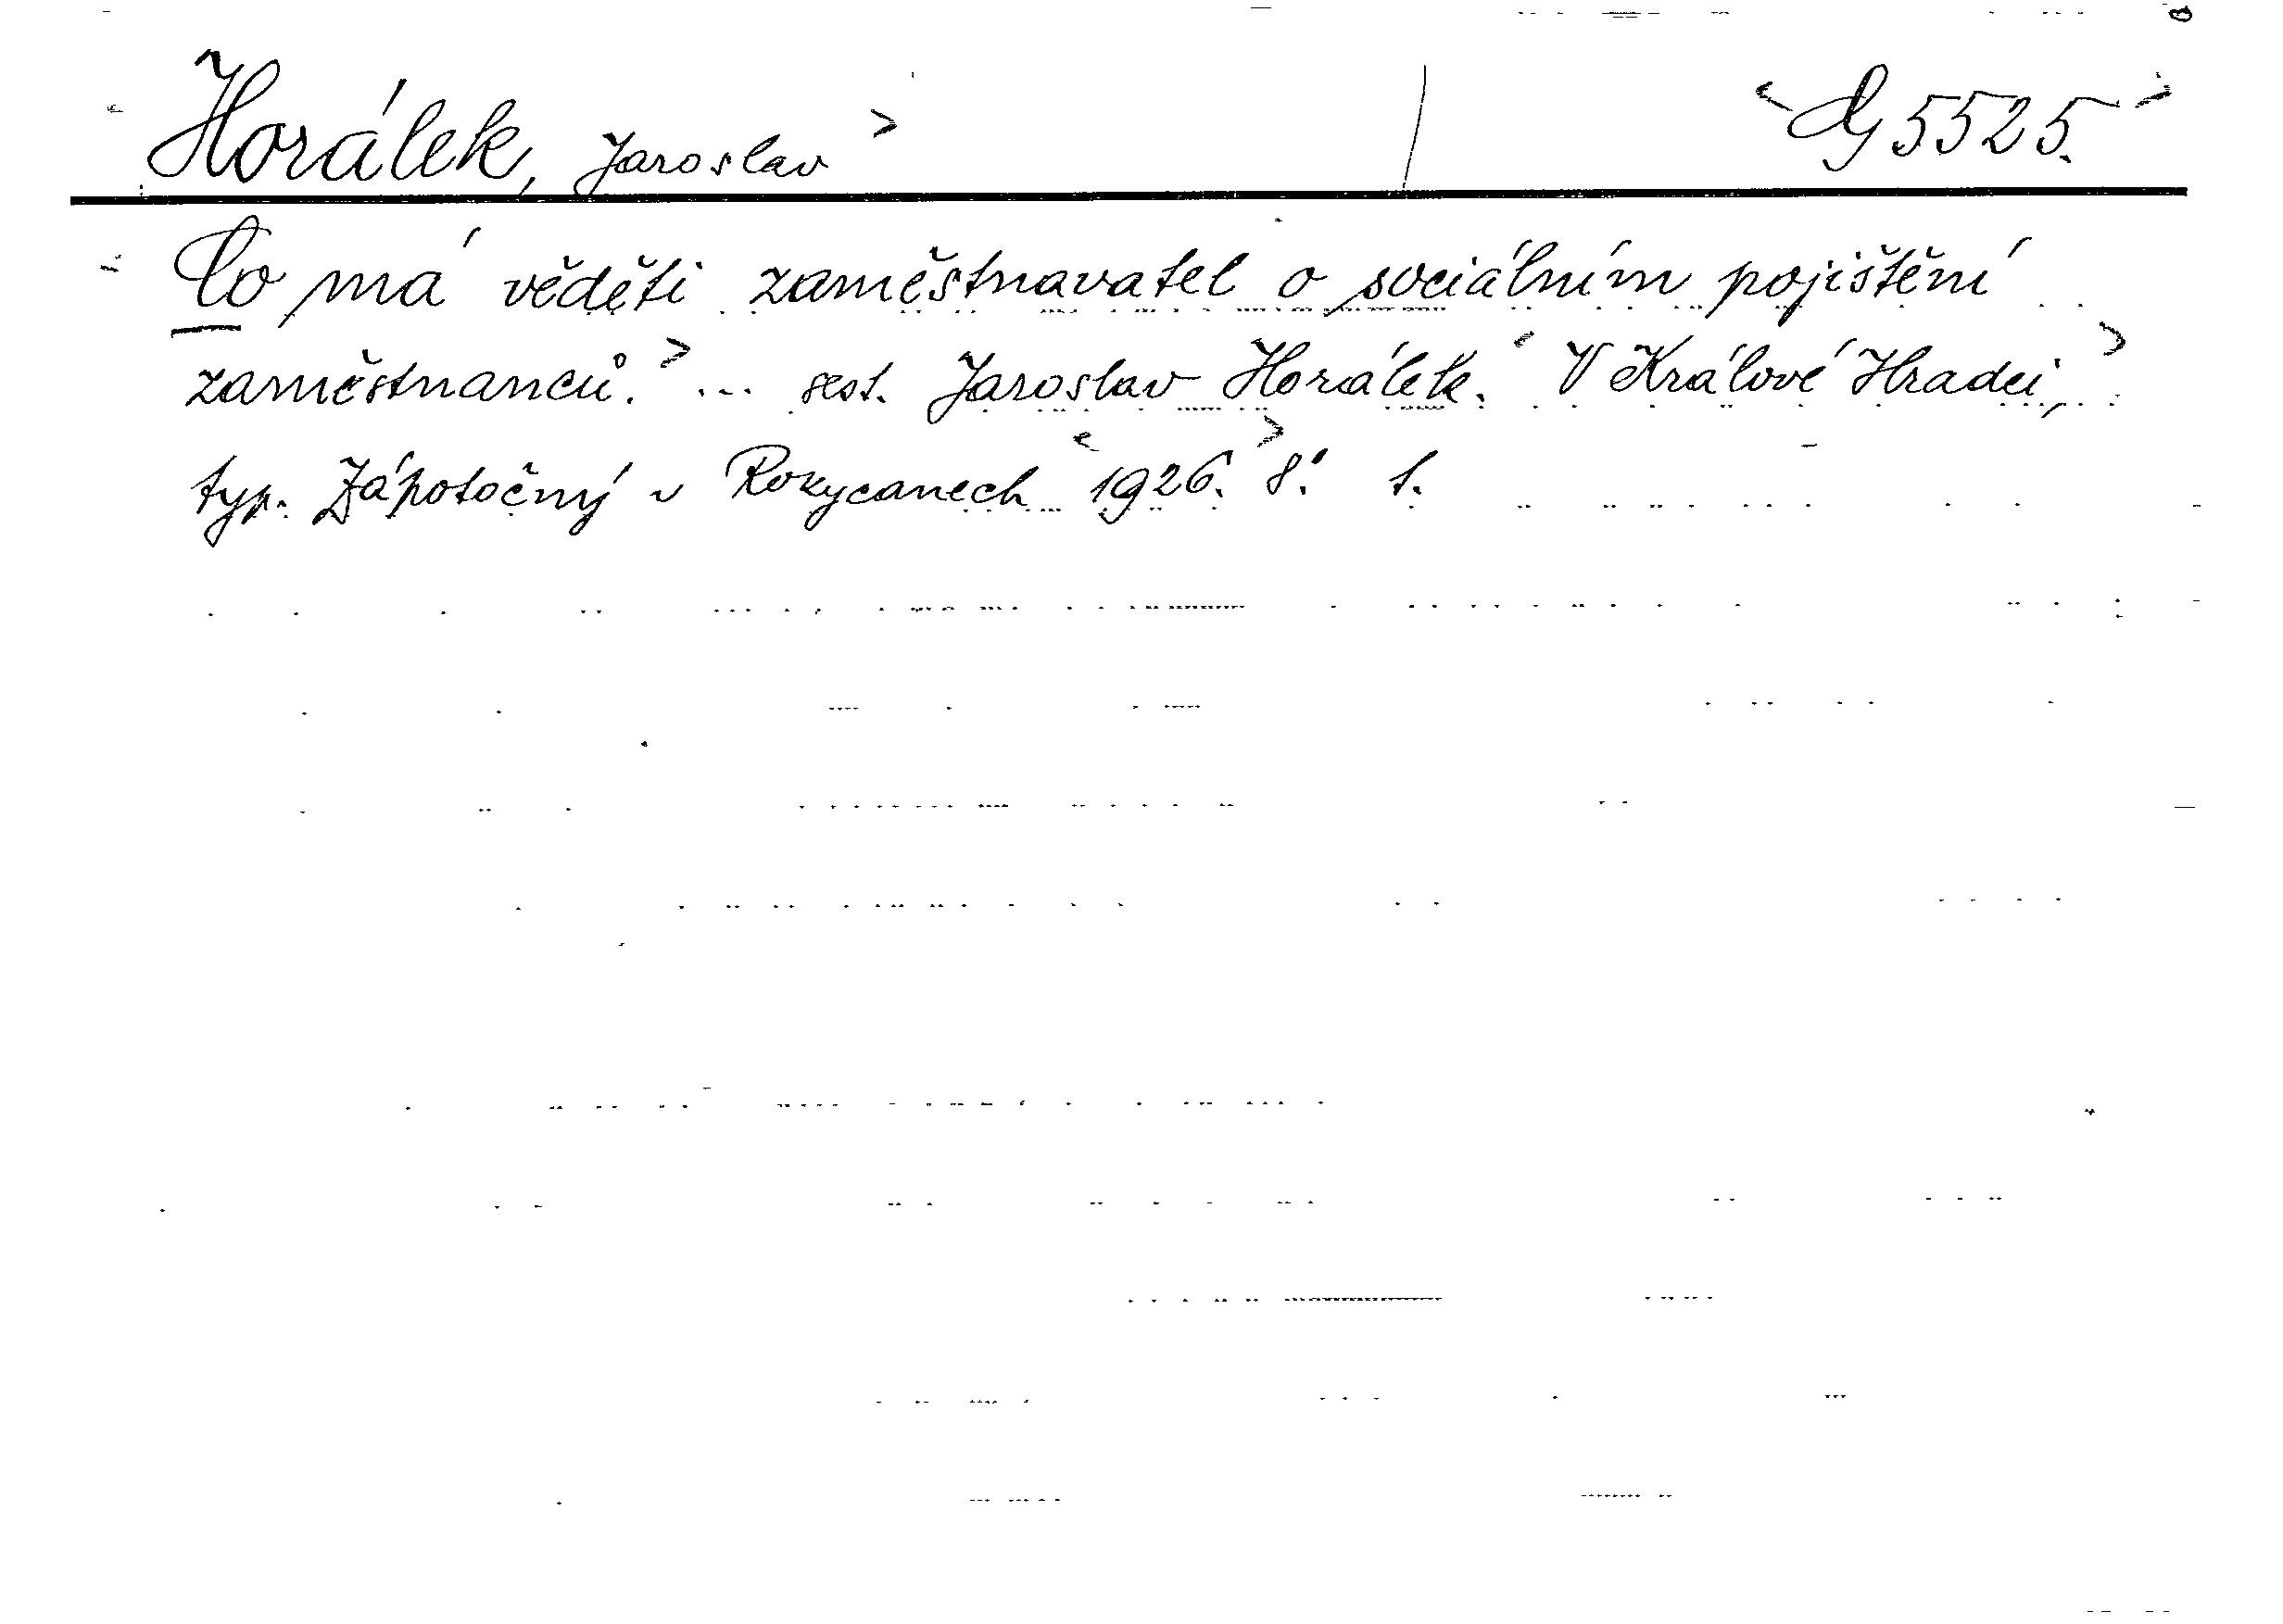 Horálek, Jaroslav G 5525.
Co má věděti zaměstnavatel o sociálním pojištění
zaměstnanců. ... sest. Jaroslav Horálek. V Králové Hradci,
typ. Zápotočný v Rokycanech 1926. 8°. 1.